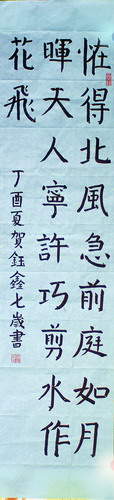 怪得北風急前庭如月
暉天人寧許巧剪水作
花飛
丁酉夏賀鈺鑫七歲書